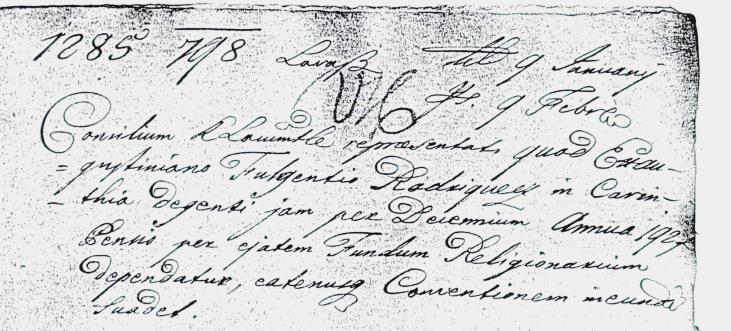 1285 798 Lovass
9 Januarij
9 Febr
Consilium Lttle repræsentat, quod Exau-
=gustiniano Fulgentio Rodriguez in Carin-
-thia degenti jam per Decennium Annua 192
Pensio per ejatem Fundum Religionarium
dependatur, eatenusq Conventionem ineundā
Suadet.